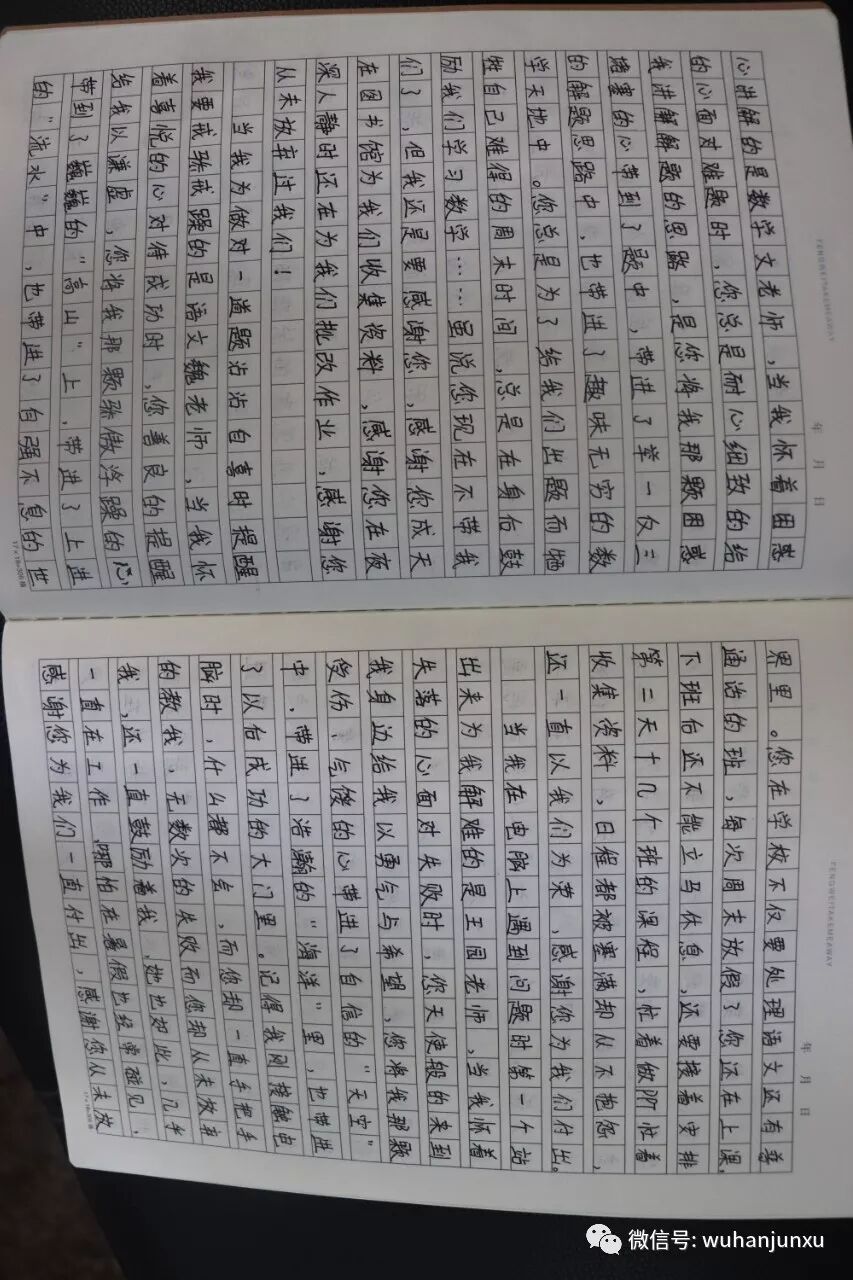 FENGWEITAKEMEAWAY
年 月 日
心讲解的是数学文老师，当我怀着困惑
的心面对难题时，您总是耐心细致的给
我讲解解题的思路，是您将我那颗困惑
堵塞的心带到了题中，带进了举一仅三
的解题思路中，也带进了趣味无穷的数
学天地中。您总是为了给我们出题而牺
牲自己难得的周末时间，总是在身后鼓
励我们学习数学……虽说您现在不带我
们了，但我还是要感谢您，感谢您成天
在图书馆为我们收集资料，感谢您在夜
深人静时还在为我们批改作业，感谢您
从未放弃过我们！
当我为做对一道题沾沾自喜时提醒
我要戒骄戒躁的是语文魏老师，当我怀
着喜悦的心对待成功时，您善良的提醒
给我以谦虚，您将我那颗骄傲浮躁的心，
带到了巍巍的“高山”上，带进了上进
的“流水”中，也带进了自强不息的世
FENGWEITAKEMEAWAY
年 月 日
界里。您在学校不仅要处理语文还有普
通话的班，每次周末放假了您还在上课，
下班后还不能立马休息，还要接着安排
第二天十几个班的课程，忙着做所忙着
收集资料，日程都被塞满却从不抱怨，
还一直以我们为荣，感谢您为我们付出。
当我在电脑上遇到问题时第一个站
出来为我解难的是王园老师，当我怀着
失落的心面对失败时，您天使般的来到
我身边给我以勇气与希望，您将我那颗
受伤、气馁的心带进了自信的“天空”
中，带进了浩瀚的“海洋”里，也带进
了以后成功的大门里。记得我刚接触电
脑时，什么都不会，而您却一直手把手
的教我，无数次的失败而您却从未放弃
我，还一直鼓励着我，她也如此，几乎
一直在工作，哪怕在暑假也经常碰见，
感谢您为我们一直付出，感谢您从未放
微信号: wuhanjunxu